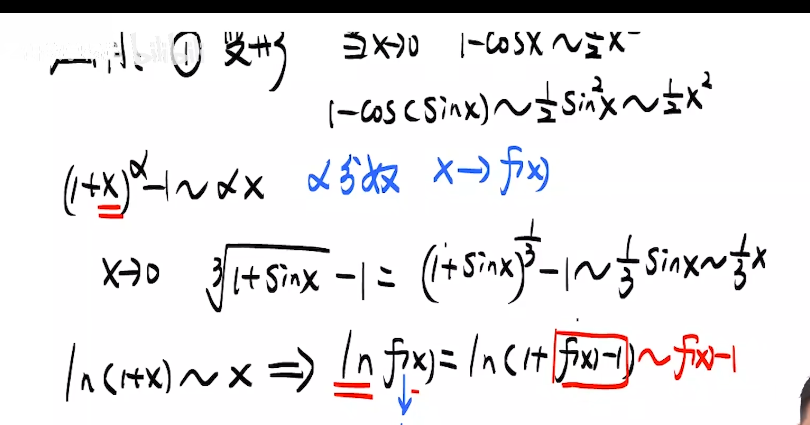 ① 变形 当x→0 1-cosx~½x²
1-cos(sinx)~½sin²x~½x²
(1+x)^α-1~αx α分数 x→f(x)
x→0 ∛(1+sinx)-1=(1+sinx)^(1/3)-1~⅓sinx~⅓x
ln(1+x)~x⇒lnf(x)=ln(1+f(x)-1)~f(x)-1